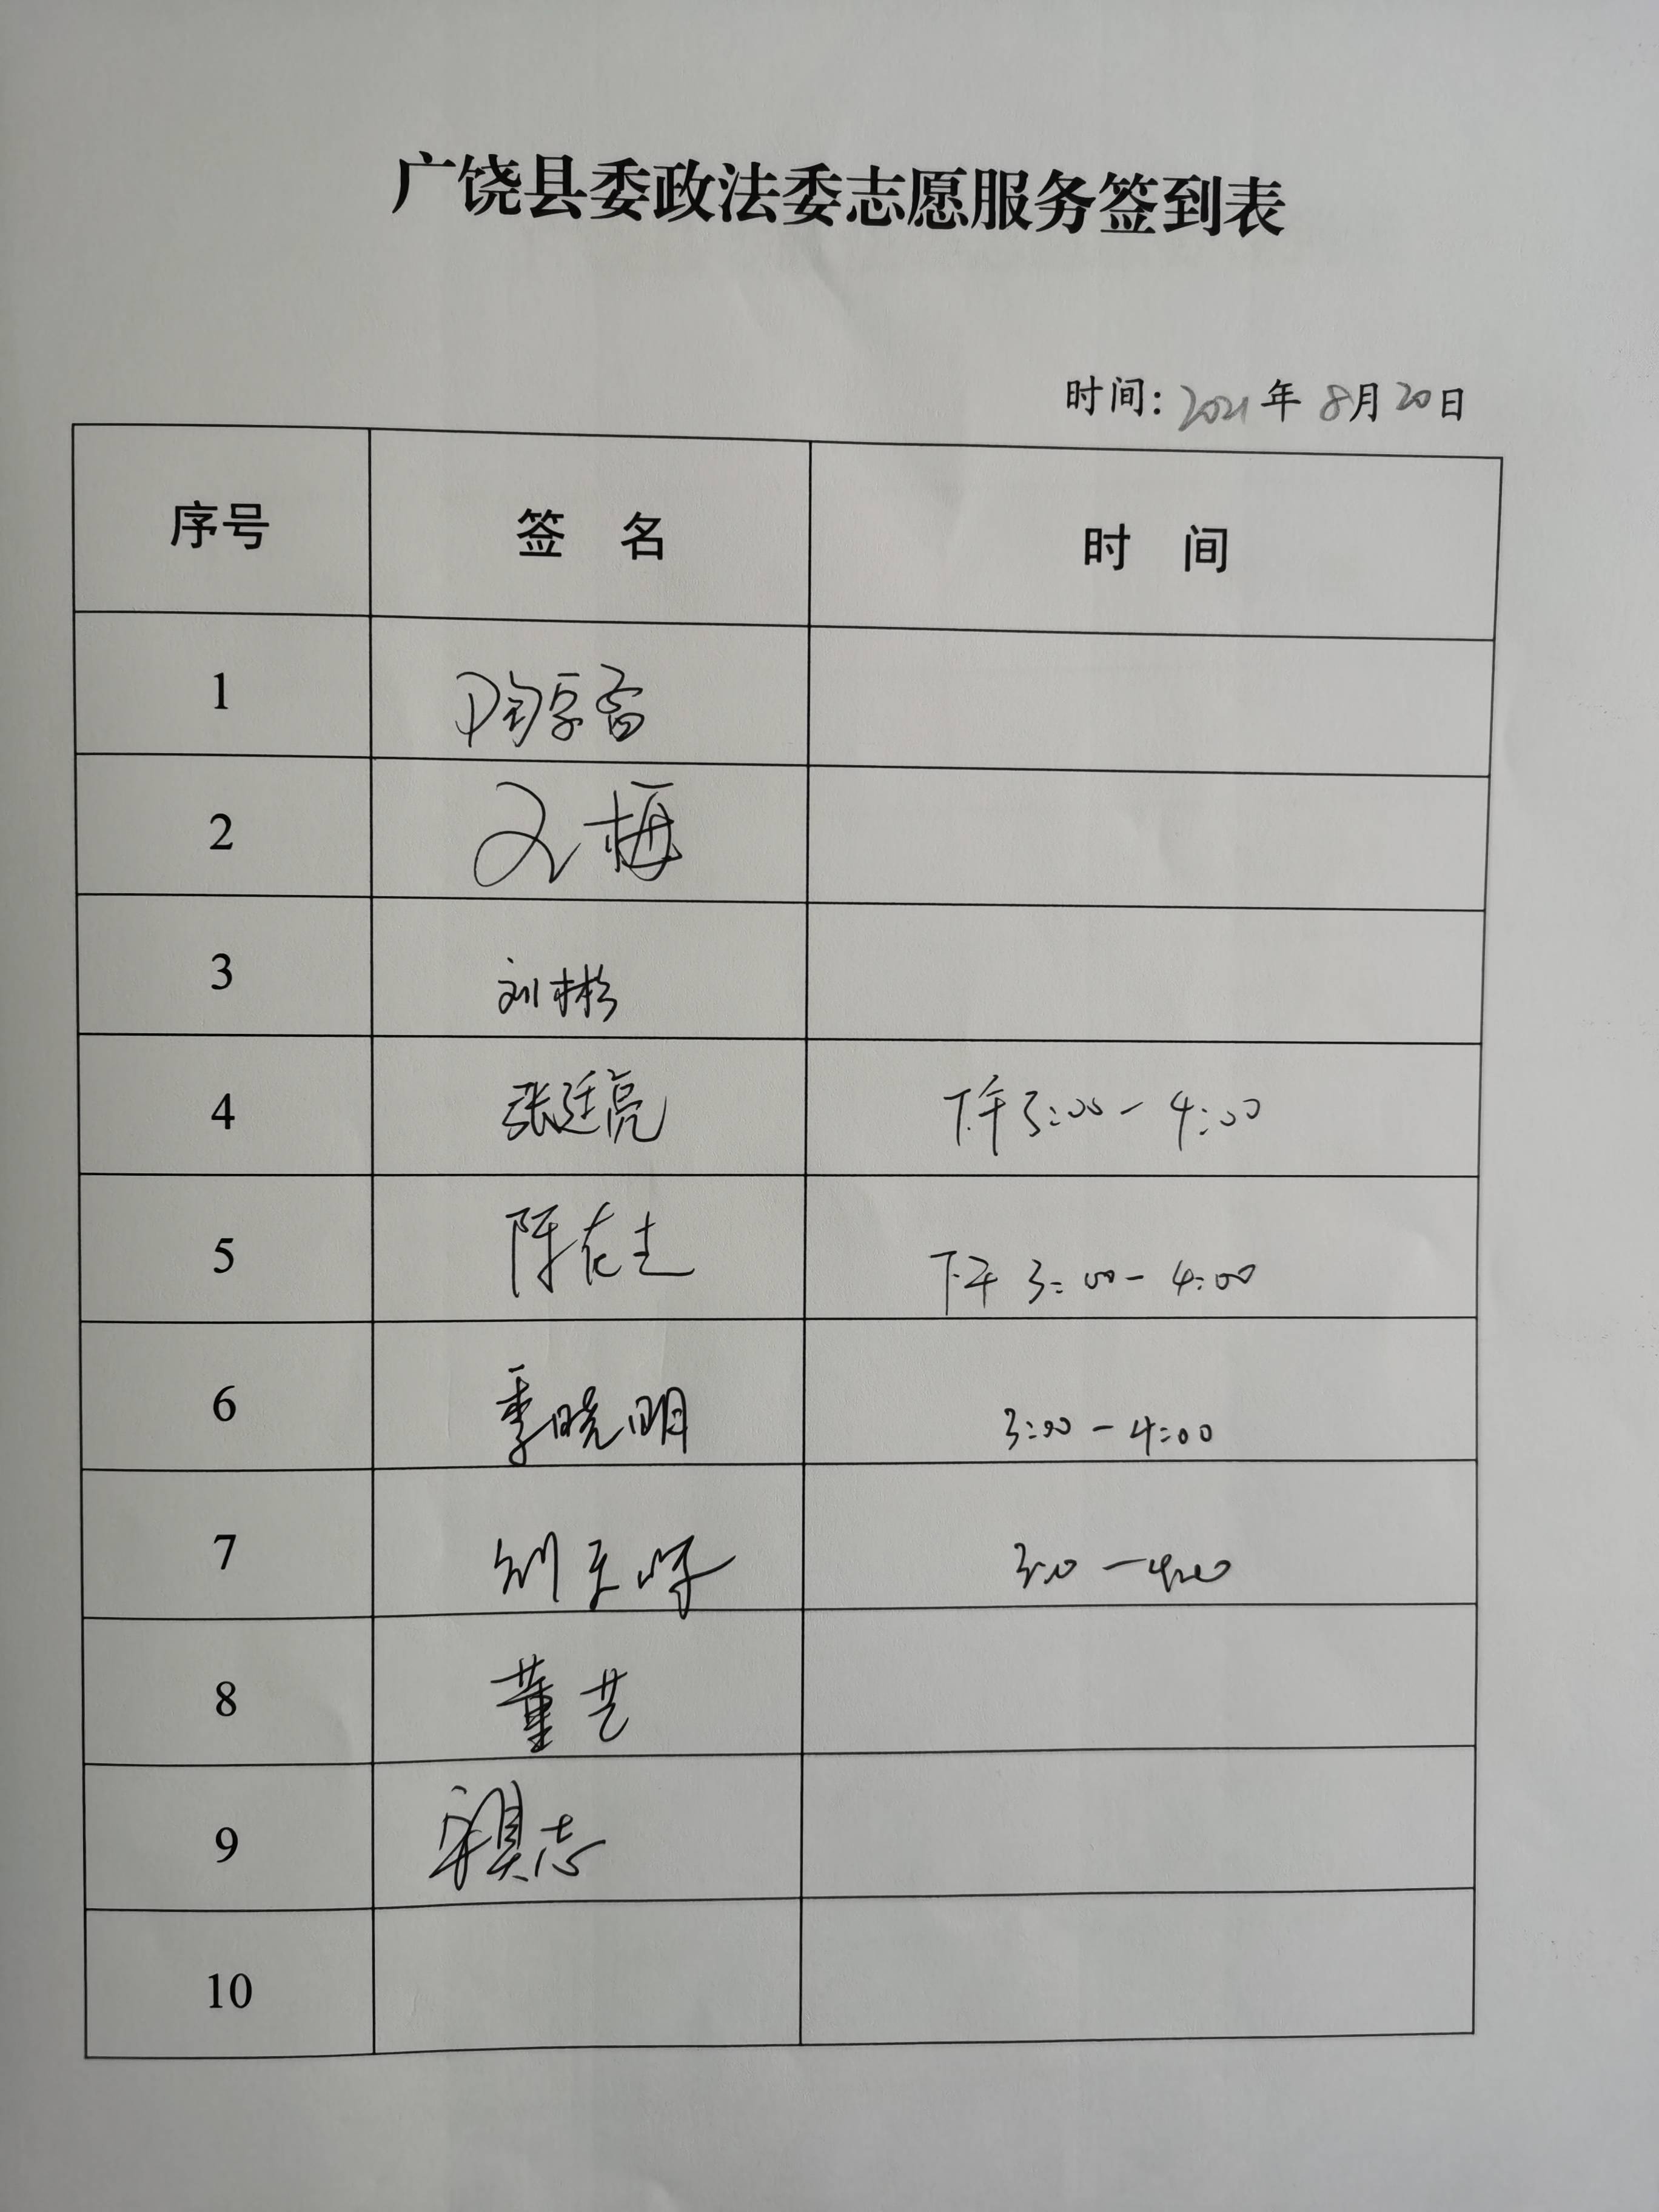 广饶县委政法委志愿服务签到表
时间: 2021年 8月20日
序号 签 名 时 间
1
2
3 刘彬
4 张廷亮 下午3:00-4:00
5 陈在 下午3:00-4:00
6 季晓明 3:00-4:00
7 刘
8 董艺
9 志
10